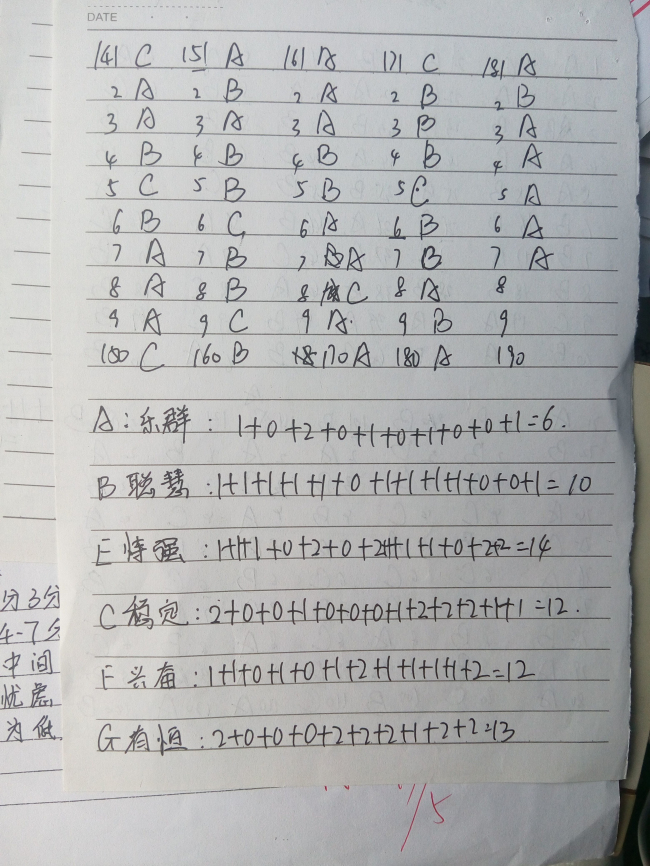 DATE
141 C 151 A 161 A 171 C 181 A
2 A 2 B 2 A 2 B 2 B
3 A 3 A 3 A 3 B 3 A
4 B 4 B 4 B 4 B 4 A
5 C 5 B 5 B 5 C 5 A
6 B 6 C 6 A 6 B 6 A
7 A 7 B 7 A 7 B 7 A
8 A 8 B 8 C 8 A 8
9 A 9 C 9 A. 9 B 9
150 C 160 B 170 A 180 A 190
A:乐群: 1+0+2+0+1+0+1+0+0+1=6.
B 聪慧:1+1+1+1+1+0+1+1+1+1+0+0+1=10
E 恃强:1+1+1+0+2+0+2+1+1+1+0+2+2=14
C 稳定:2+0+0+1+0+0+0+1+2+2+2+1+1=12.
F 兴奋:1+1+0+1+0+1+2+1+1+1+1+2=12
G 有恒:2+0+0+0+2+2+2+1+2+2=13
分3分
4-7分
中间
忧虑
为低